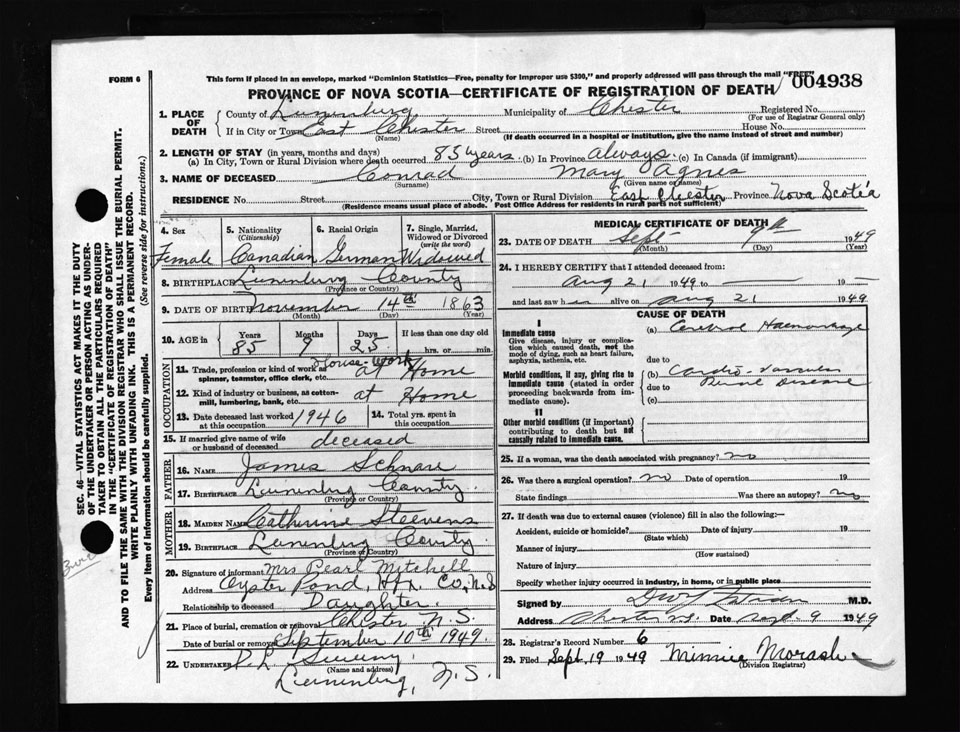 FORM 6
This form if placed in an envelope, marked "Dominion Statistics—Free, penalty for improper use $300," and properly addressed will pass through the mail "FREE"
004938
PROVINCE OF NOVA SCOTIA—CERTIFICATE OF REGISTRATION OF DEATH
1. PLACE OF DEATH
County of Lunenburg Municipality of Chester Registered No.
(For use of Registrar General only)
If in City or Town East Chester Street House No.
(Name) (If death occurred in a hospital or institution, give the name instead of street and number)
2. LENGTH OF STAY (in years, months and days)
(a) In City, Town or Rural Division where death occurred 85 years (b) In Province always (c) In Canada (if immigrant)
3. NAME OF DECEASED Conrad Mary Agnes
(Surname) (Given name or names)
RESIDENCE No. Street City, Town or Rural Division East Chester Province Nova Scotia
(Residence means usual place of abode. Post Office Address for residents in rural parts not sufficient)
4. Sex 5. Nationality (Citizenship) 6. Racial Origin 7. Single, Married, Widowed or Divorced (write the word)
Female Canadian German Widowed
8. BIRTHPLACE Lunenburg County
(Province or Country)
9. DATE OF BIRTH November 14th 1863
(Month) (Day) (Year)
10. AGE in Years Months Days If less than one day old
85 9 25 hrs. or min.
OCCUPATION
11. Trade, profession or kind of work as spinner, teamster, office clerk, etc. House work at Home
12. Kind of industry or business, as cotton-mill, lumbering, bank, etc. at Home
13. Date deceased last worked at this occupation 1946 14. Total yrs. spent in this occupation
15. If married give name of wife or husband of deceased deceased
FATHER
16. NAME James Schnare
17. BIRTHPLACE Lunenburg County
(Province or Country)
MOTHER
18. MAIDEN NAME Catherine Steevens
19. BIRTHPLACE Lunenburg County
(Province or Country)
20. Signature of informant Mrs Pearl Mitchell
Address Oyster Pond, Hfx. Co, N.S
Relationship to deceased Daughter
21. Place of burial, cremation or removal Chester N.S.
Date of burial or removal September 10th 1949
22. UNDERTAKER
(Name and address)
Lunenburg, N.S.
MEDICAL CERTIFICATE OF DEATH
23. DATE OF DEATH Sept 9th 1949
(Month) (Day) (Year)
24. I HEREBY CERTIFY that I attended deceased from:
Aug 21 1949 to 19
and last saw her alive on Aug 21 1949
CAUSE OF DEATH
I
Immediate cause
Give disease, injury or complication which caused death, not the mode of dying, such as heart failure, asphyxia, asthenia, etc.
(a) Cerebral Haemorrhage
due to
Morbid conditions, if any, giving rise to immediate cause (stated in order proceeding backwards from immediate cause).
(b) Cardio-vascular
due to Renal Disease
(c)
II
Other morbid conditions (if important) contributing to death but not causally related to immediate cause.
25. If a woman, was the death associated with pregnancy? no
26. Was there a surgical operation? no Date of operation 19
State findings Was there an autopsy? no
27. If death was due to external causes (violence) fill in also the following:—
Accident, suicide or homicide? Date of injury 19
(State which)
Manner of injury
(How sustained)
Nature of injury
Specify whether injury occurred in industry, in home, or in public place
Signed by M.D.
Address Chester N.S. Date Sept 9 1949
28. Registrar's Record Number 6
29. Filed Sept. 19 1949 Minnie Morash
(Division Registrar)
SEC. 46—VITAL STATISTICS ACT MAKES IT THE DUTY
OF THE UNDERTAKER OR PERSON ACTING AS UNDERTAKER TO OBTAIN ALL THE PARTICULARS REQUIRED
IN THE "CERTIFICATE OF REGISTRATION OF DEATH"
AND TO FILE THE SAME WITH THE DIVISION REGISTRAR WHO SHALL ISSUE THE BURIAL PERMIT.
WRITE PLAINLY WITH UNFADING INK. THIS IS A PERMANENT RECORD.
Every item of information should be carefully supplied. (See reverse side for instructions.)